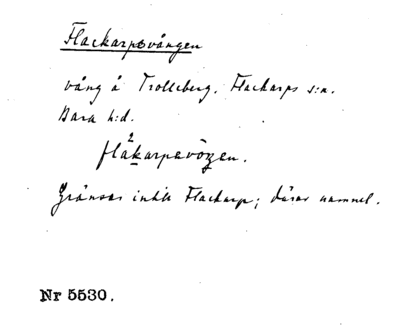 Flackarpsvången
vång å Trolleberg. Flackarps s:n.
Bara h:d.
flákarpsvöŋen.
Gränsar intill Flackarp; därav namnet.
Nr 5530.